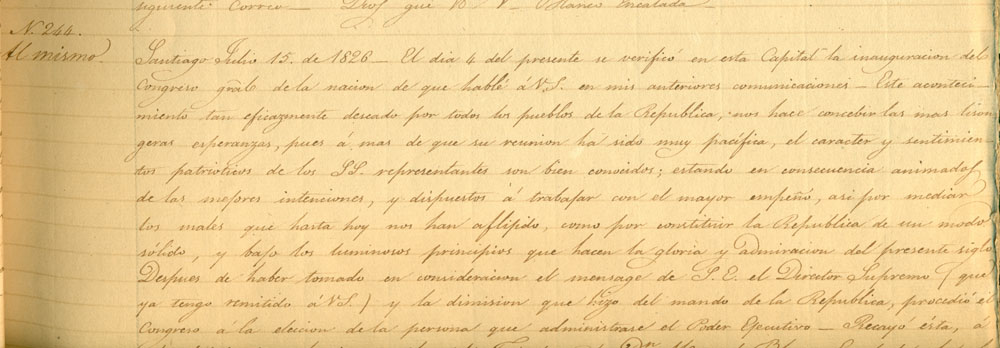 siguiente Correo — Dios gue. á V. S. — Blanco Encalada
N. 244.
Al mismo. Santiago Julio 15. de 1826 — El dia 4 del presente se verificó en esta Capital la inauguracion del
Congreso gral. de la nacion de que hablé á V.S. en mis anteriores comunicaciones — Este aconteci-
miento tan eficazmente deseado por todos los pueblos de la Republica, nos hace concebir las mas lison
geras esperanzas, pues á mas de que su reunion ha sido muy pacifica, el caracter y sentimien-
tos patrioticos de los SS. representantes son bien conocidos; estando en consecuencia animados
de las mejores intenciones, y dispuestos á trabajar con el mayor empeño, asi por mediar
los males que hasta hoy nos han aflijido, como por constituir la Republica de un modo
sólido, y bajo los luminosos principios que hacen la gloria y admiracion del presente siglo
Despues de haber tomado en consideracion el mensage de S.E. el Director Supremo (que
ya tengo remitido á V.S.) y la dimision que hizo del mando de la Republica, procedió el
Congreso á la eleccion de la persona que administrase el Poder Ejecutivo — Recayó ésta, á